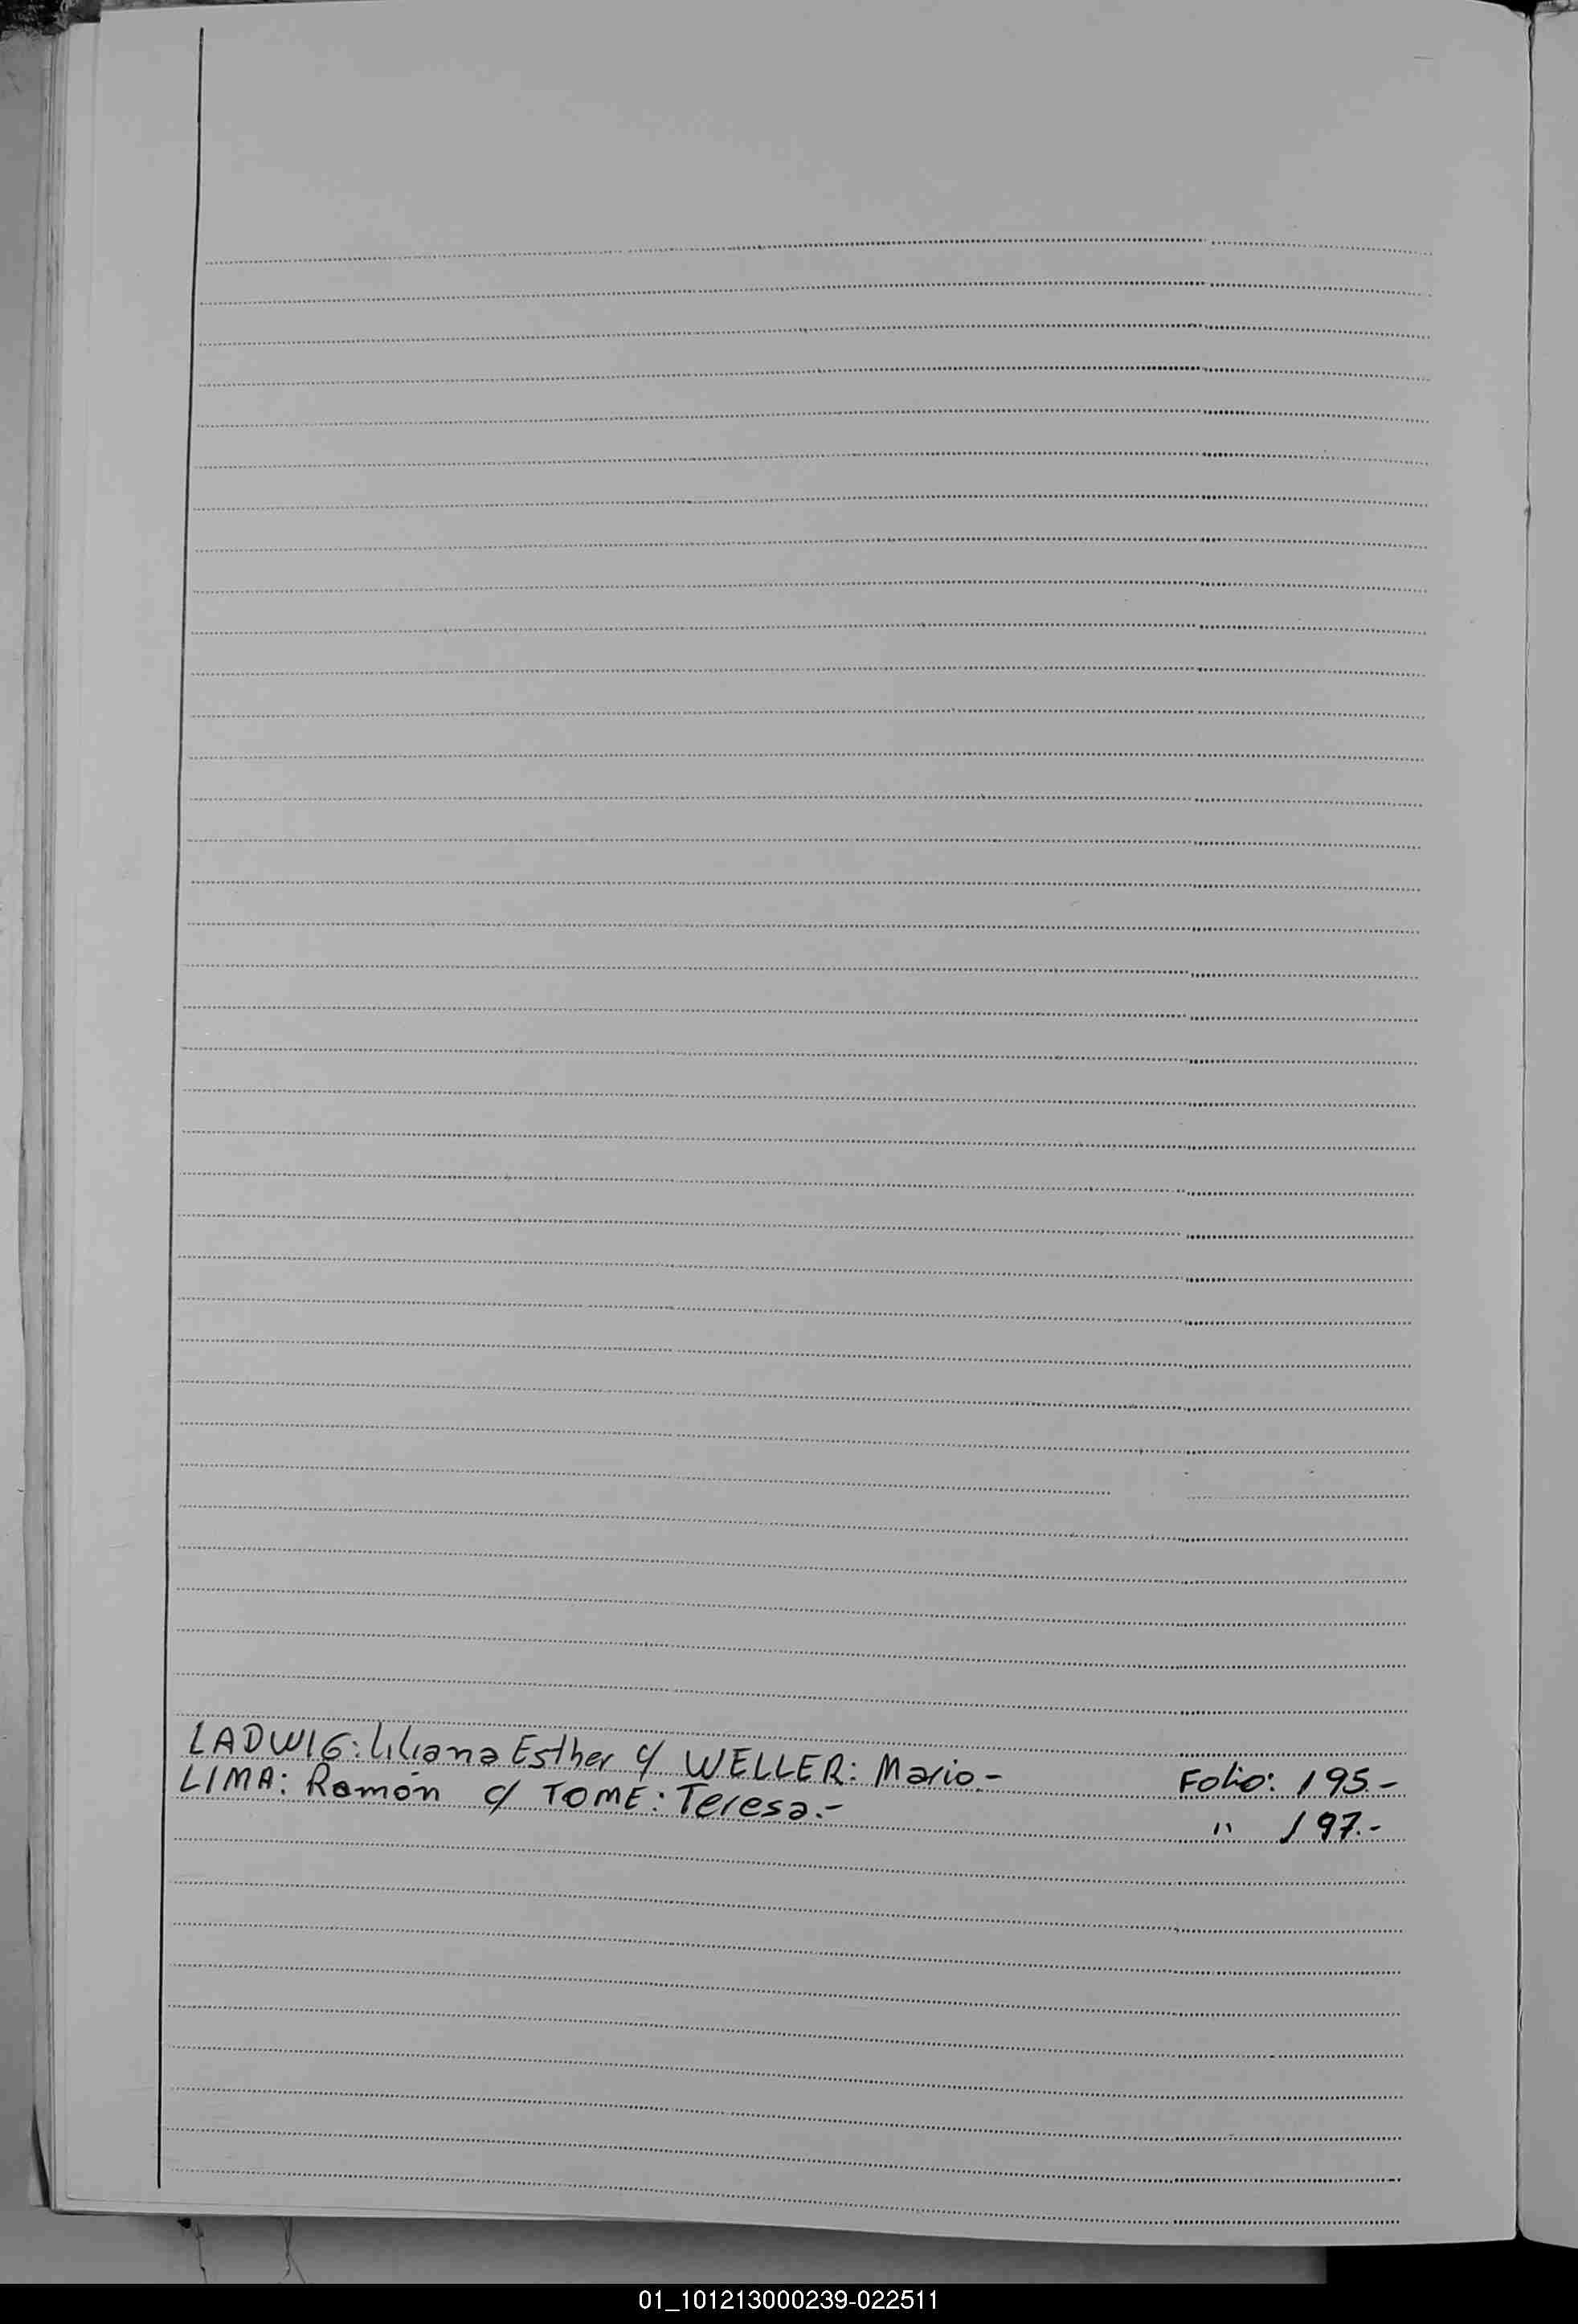 LADWIG: Liliana Esther c/ WELLER: Mario- Folio: 195.-
LIMA: Ramón c/ TOME: Teresa.- " 197.-
01_101213000239-022511